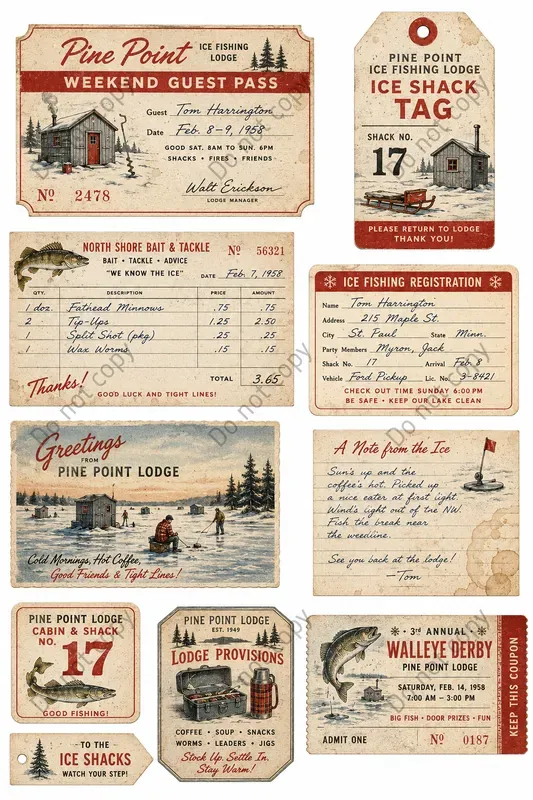 Pine Point
ICE FISHING
LODGE
WEEKEND GUEST PASS
Guest Tom Harrington
Date Feb. 8–9, 1958
GOOD SAT. 8AM TO SUN. 6PM
SHACKS • FIRES • FRIENDS
Walt Erickson
LODGE MANAGER
Nº 2478
PINE POINT
ICE FISHING LODGE
ICE SHACK
TAG
SHACK NO.
17
PLEASE RETURN TO LODGE
THANK YOU!
NORTH SHORE BAIT & TACKLE
Nº 56321
BAIT • TACKLE • ADVICE
"WE KNOW THE ICE"
DATE Feb. 7, 1958
QTY. DESCRIPTION PRICE AMOUNT
1 doz. Fathead Minnows .75 .75
2 Tip-Ups 1.25 2.50
1 Split Shot (pkg) .25 .25
1 Wax Worms .15 .15
Thanks!
TOTAL 3.65
GOOD LUCK AND TIGHT LINES!
ICE FISHING REGISTRATION
Name Tom Harrington
Address 215 Maple St.
City St. Paul State Minn.
Party Members Myron, Jack
Shack No. 17 Arrival Feb 8
Vehicle Ford Pickup Lic. No. 3-8421
CHECK OUT TIME SUNDAY 6:00 PM
BE SAFE • KEEP OUR LAKE CLEAN
Greetings
FROM
PINE POINT LODGE
Cold Mornings, Hot Coffee,
Good Friends & Tight Lines!
A Note from the Ice
Sun's up and the
coffee's hot. Picked up
a nice eater at first light.
Wind's light out of the NW.
Fish the break near
the weedline.
See you back at the lodge!
—Tom
PINE POINT LODGE
CABIN & SHACK
NO. 17
GOOD FISHING!
TO THE
ICE SHACKS
WATCH YOUR STEP!
PINE POINT LODGE
EST. 1949
LODGE PROVISIONS
COFFEE • SOUP • SNACKS
WORMS • LEADERS • JIGS
Stock Up. Settle In.
Stay Warm!
3rd ANNUAL
WALLEYE DERBY
PINE POINT LODGE
SATURDAY, FEB. 14, 1958
7:00 AM – 3:00 PM
BIG FISH • DOOR PRIZES • FUN
ADMIT ONE Nº 0187
KEEP THIS COUPON
Do not copy
Do not copy
Do not copy
Do not copy
Do not copy
Do not copy
Do not copy
Do not copy